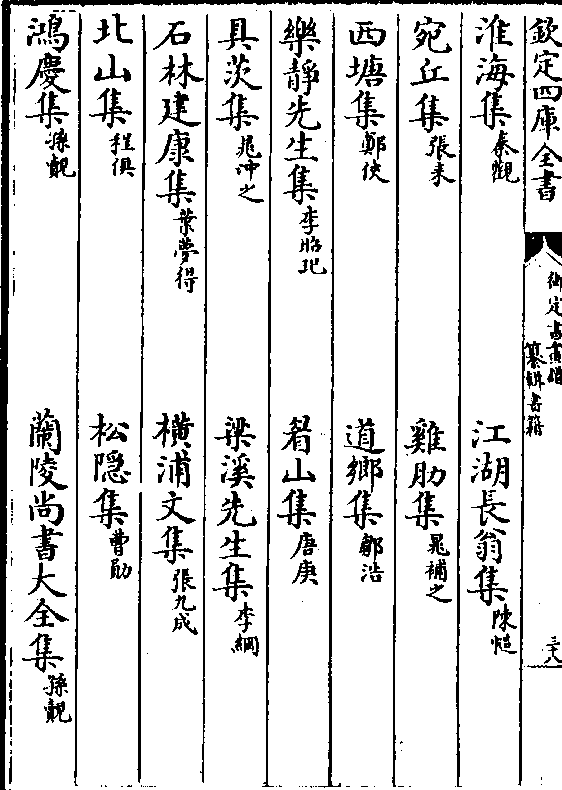 欽定四庫全書
御定書畫譜
纂輯書籍
三十八
淮海集 秦觀 江湖長翁集 陳慥
宛丘集 張耒 雞肋集 晁補之
西塘集 鄭俠 道鄉集 鄒浩
樂靜先生集 李昭玘 眉山集 唐庚
具茨集 晁冲之 梁溪先生集 李綱
石林建康集 葉夢得 橫浦文集 張九成
北山集 程俱 松隠集 曹勛
鴻慶集 孫覿 蘭陵尚書大全集 孫覿